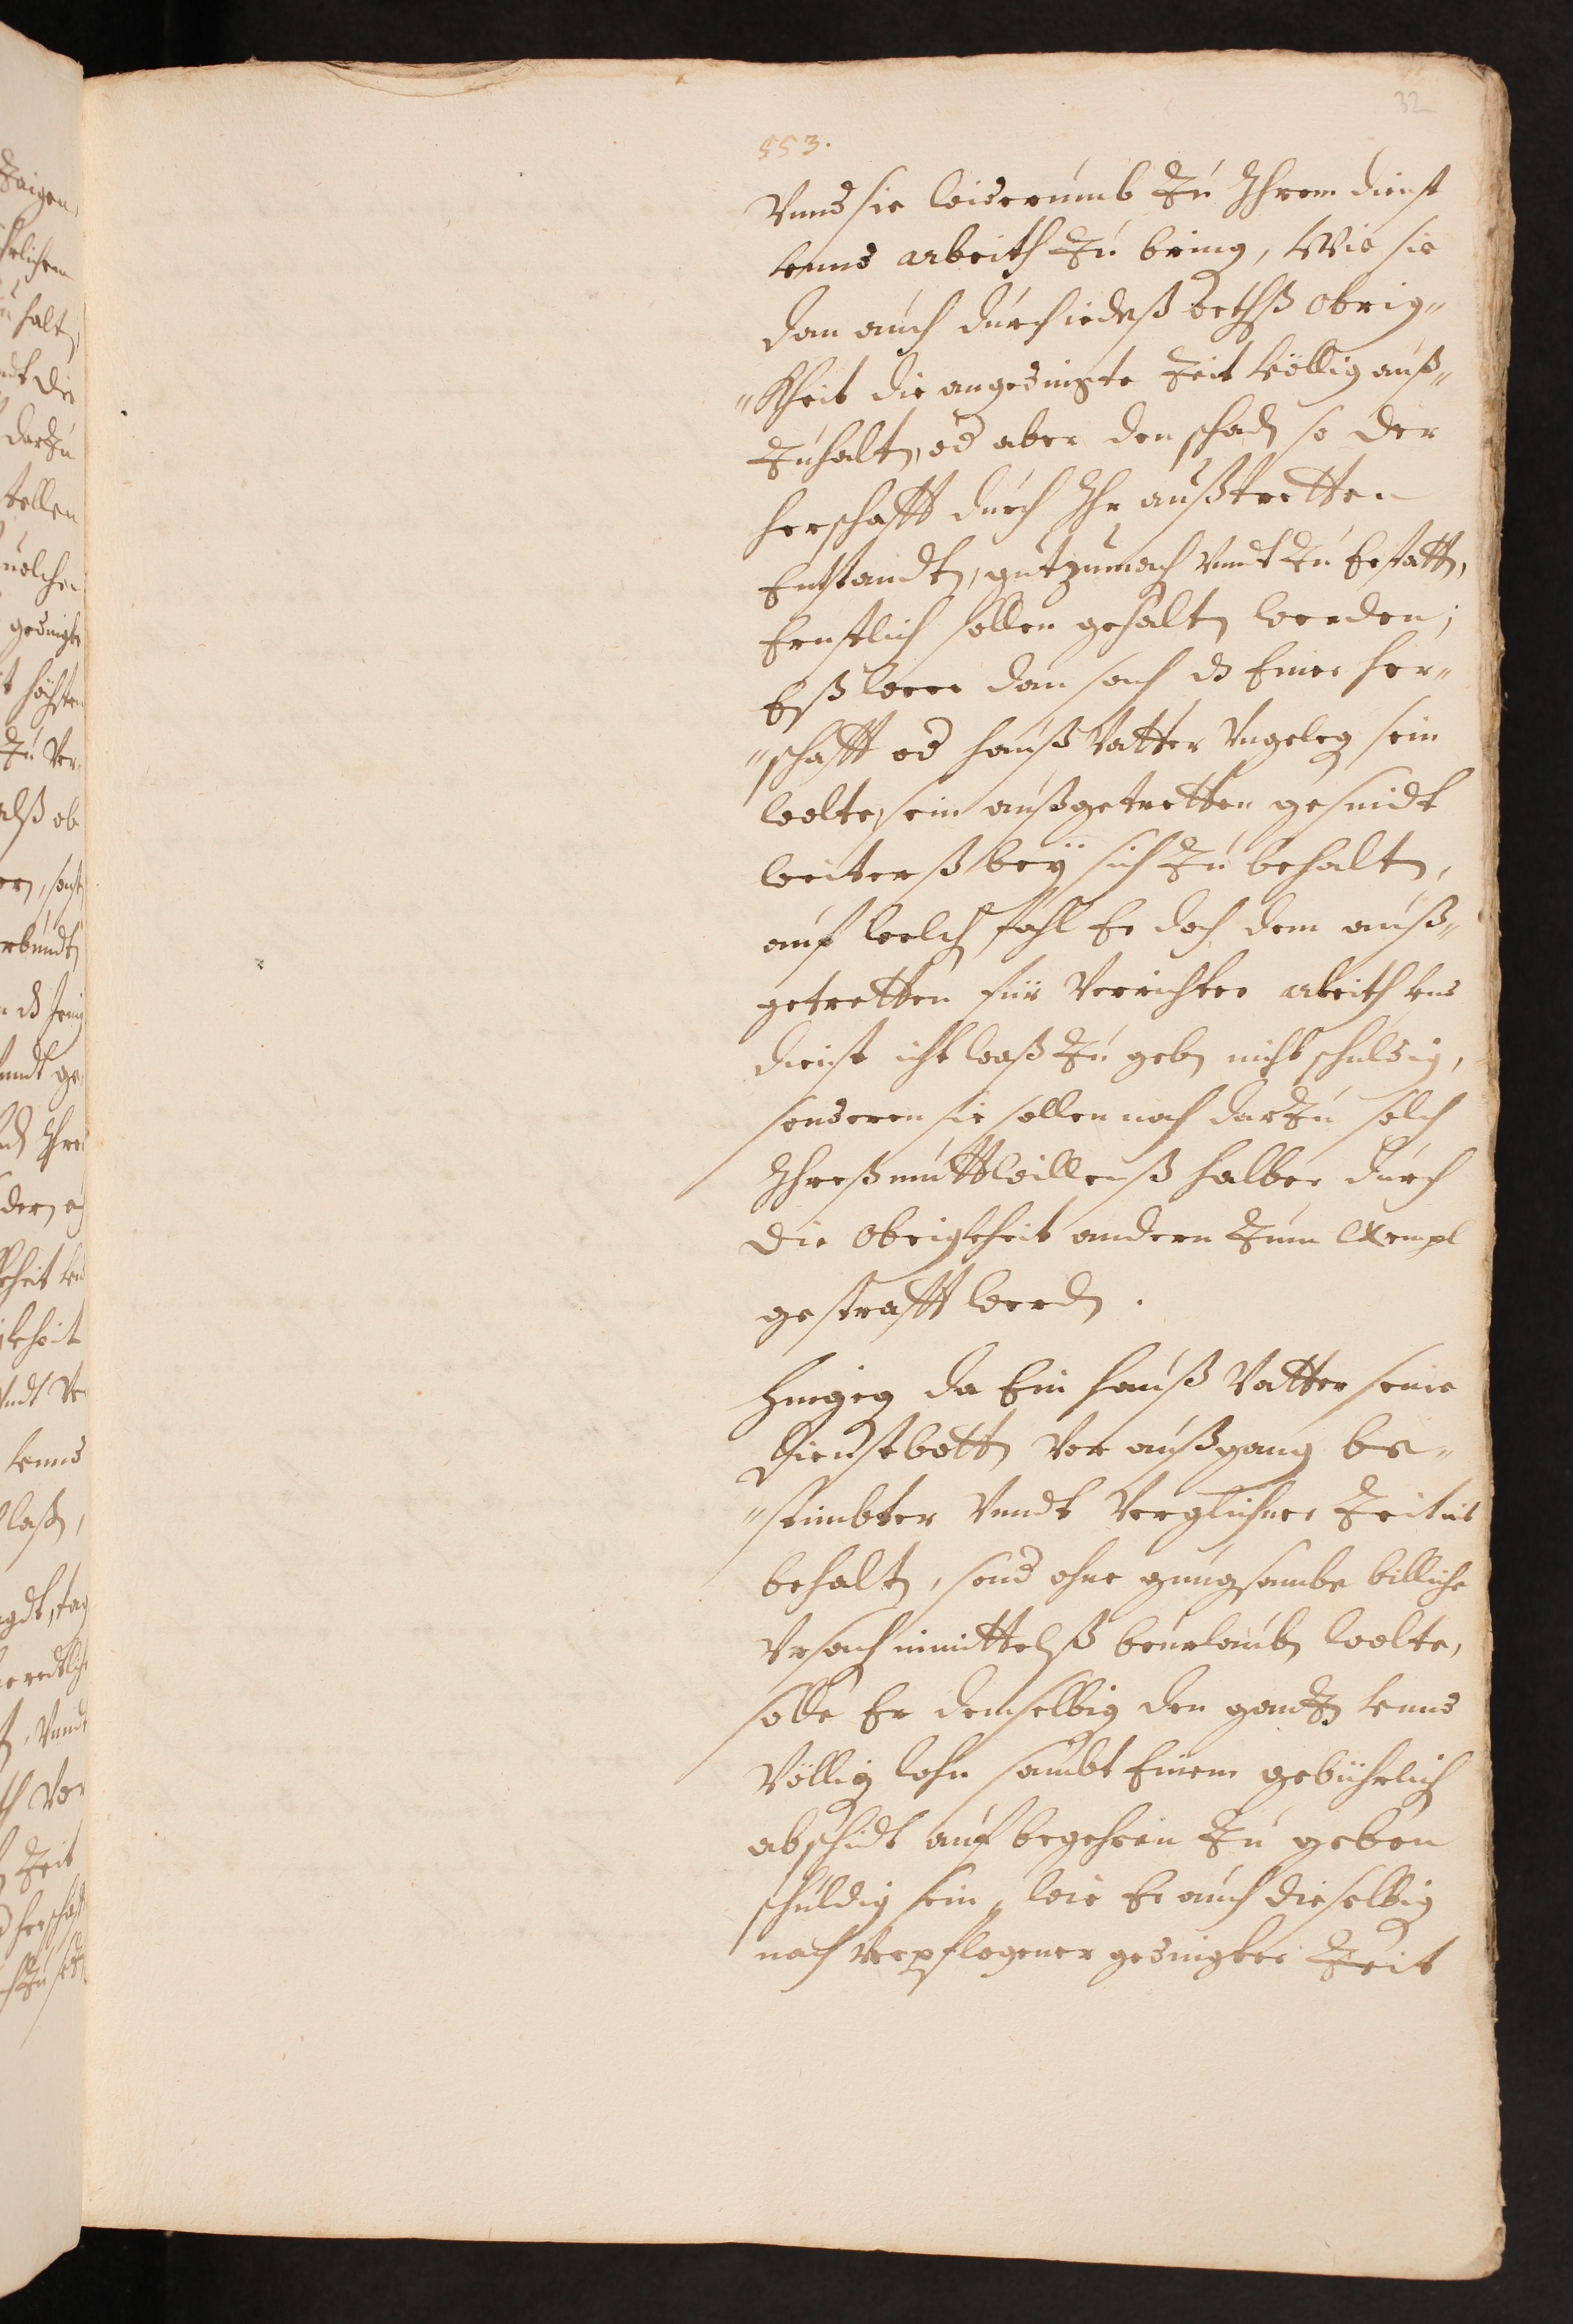 32
553.
Vnnd sie widerumb Zu Ihrem dienst
vnnd arbeith Zu bring, Wie sie
dan auch durch iedeß orthß obrig„
„kheit die angedingte Zeit völlig auß„
Zuhalt, od aber den schad so der
herschafft durch Ihr außtretten
Entstandt, gutzumach Vnndt Zu Erstatt,
Ernstlich sollen gehalt werden;
Eß were dan sach dz Einer her„
„schafft od hauß Vatter Vngeleg sein
wolte, sein außgetretten gesindt
weiterß beÿ sich Zu behalt,
auf welch fahl Er doch dem auß„
getretten für Verrichter arbeith vnd
dienst icht waß Zu geb nicht schuldig,
sonderen sie sollen noch darZu solch
Ihreß muttwillenß halber durch
die Obrigkheit andern Zum Exempl
gestrafft werd.
Hingeg da Ein hauß Vatter seine
Dienstbott Vor außgang be„
„stimbter Vnndt Verglichner Zeit nit
behalt, sond ohne gnugsambe billiche
Vrsach inmittelß beurlaub wolte,
solle Er demselbig den gantz vnnd
Völlig lohn sambt Einem gebührlich
abschidt auf begehren Zu geben
schuldig sein, wie Er auch dieselbig
nach Verpflogener gedingter Zeit